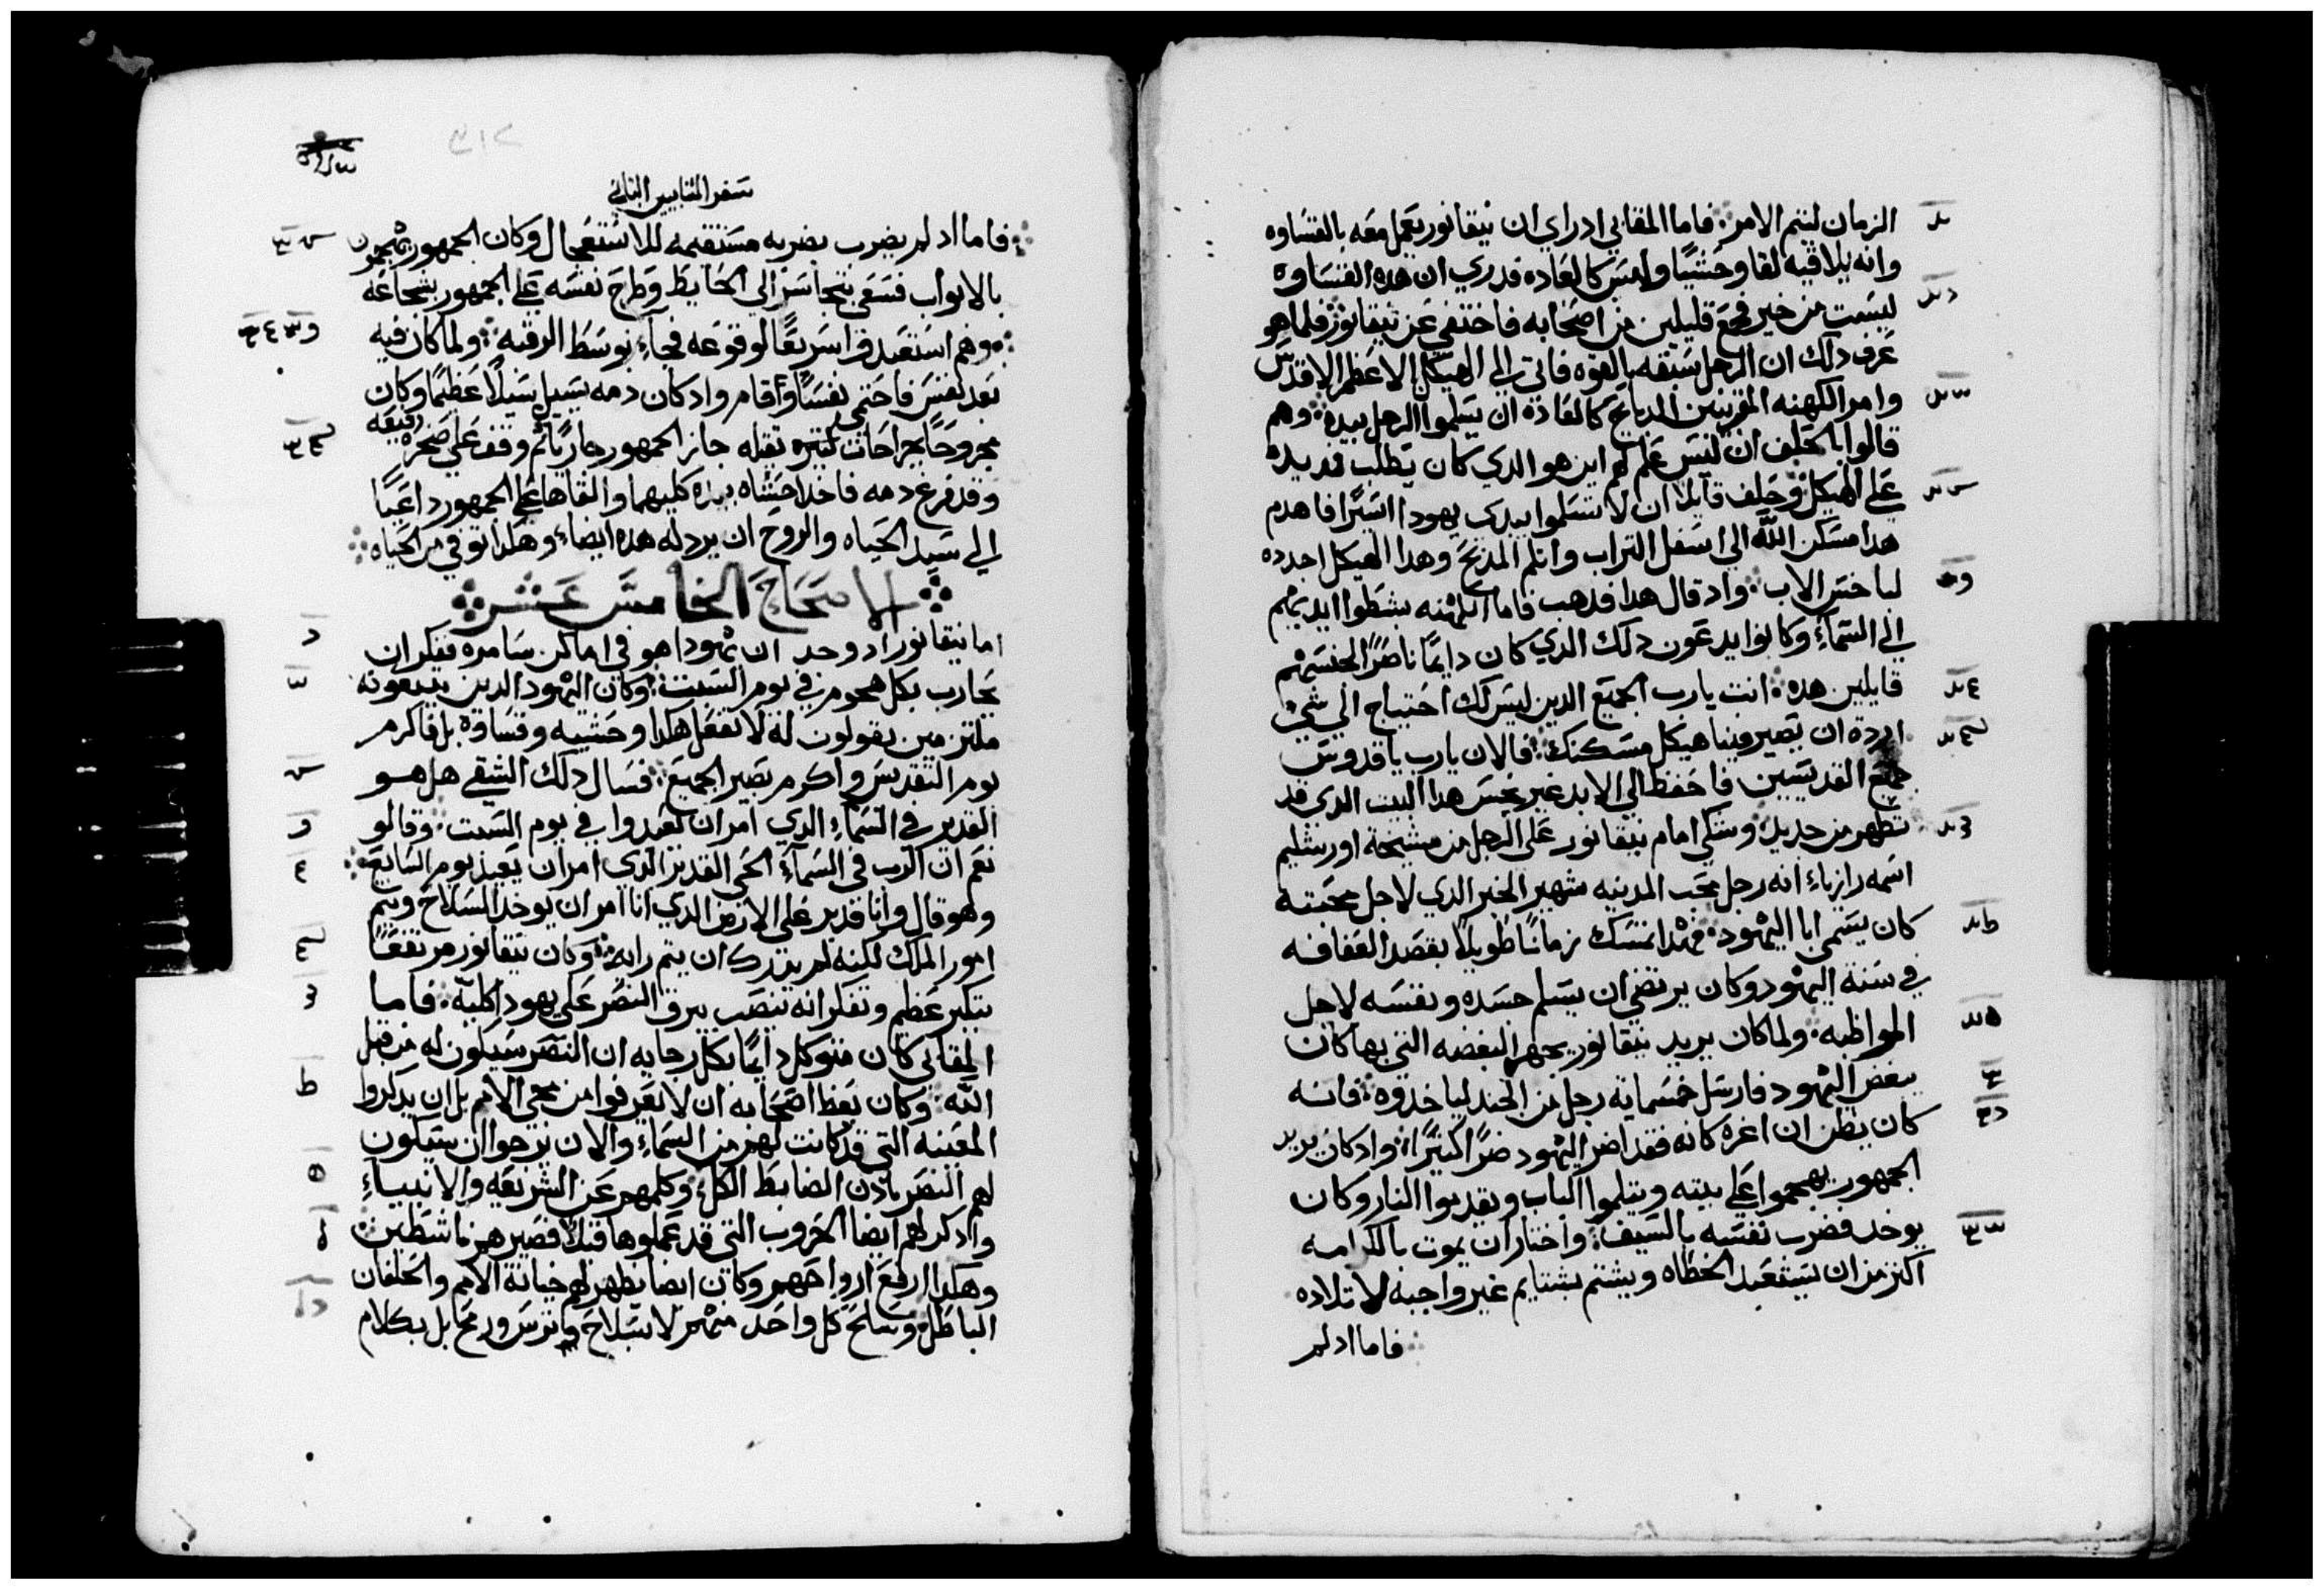 الزمان ليتم الامر فاما المقابي اد راي ان نيقانور يعمل معه بالقساوه
وانه يلاقيه لقا وحشيا وليس كالعاده فدري ان هده القساوه
ليست من خير فجمع قليلين من اصحابه فاختفي عن نيقانور فلما هو
عرف دلك ان الرجل سبقه بالقوه فاتي الي الهيكل الاعظم الاقدس
وامر الكهنه المقربين الدبايح كالعاده ان يسلموا الرجل بيده وهم
قالوا بالحلف ان ليس علم لهم اين هو الدي كان يطلب فمد يده
علي الهيكل وحلف قايلا ان لا تسلموا بيدي يهودا اسيرا فاهدم
هدا مسكن الله الي اسفل التراب واثلم المدبح وهدا الهيكل اجدده
لباخس الاب واد قال هدا فدهب فاما الكهنه بسطوا ايديهم
الي السماء وكانوا يدعون دلك الدي كان دايما ناصرا لجنسهم
قايلين هده انت يارب الجميع الدين ليس لك احتياج الي شي
اردة ان تصير فينا هيكل مسكنك فالان يارب يا قدوس
جميع القديسين فاحفظ الي الابد غير نجس هدا البيت الدي قد
تطهر من جديد وشكي امام نيقانور علي الرجل من مشيخة اورشليم
اسمه رازياء انه رجل محب المدينه شهير الخبر الدي لاجل محبته
كان يسمي ابا اليهود فهدا تمسك زمانا طويلا بقصد العفافه
في سنة اليهود وكان يرتضي ان يسلم جسده ونفسه لاجل
المواظبه ولما كان يريد نيقانور يجهر البغضه التي بها كان
يبغض اليهود فارسل خمسماية رجل من الجند لياخدوه فانه
كان يظن ان اغره كانه فقد اضر اليهود ضرا كثيرا واد كان يريد
الجمهور يهجموا علي بيته ويثلموا الباب ويقدموا النار وكان
يوخد فضرب نفسه بالسيف واختار ان يموت بالكرامه
اكثر من ان يستعبد للخطاه ويشتم بشتايم غير واجبه لاتلاده
فاما اد لم
سفر المقابيين الثاني
فاما اد لم يضرب بضربه مستقيمه للاستعجال وكان الجمهور يهجمون
بالابواب فسعي بتجاسر الي الحايط وطرح نفسه علي الجمهور بشجاعه
وهم استبعدوا سريعا لوقوعه فجاء بوسط الرقبه ولما كان فيه
بعد نفس فاحتمي نفسا واقام واد كان دمه يسيل سيلا عظيما وكان
مجروحا بجراحات كثيره ثقيله جاز الجمهور جاريا ثم وقف علي صخره رفيعه
وقد فرغ دمه فاخد احشاه بيده كليهما والقاها علي الجمهور داعيا
الي سيد الحياه والروح ان يرد له هده ايضا وهكدا توفي من الحياه
الاصحاح الخامس عشر
اما نيقانور اد وجد ان يهودا هو في اماكن سامره ففكر ان
يحارب بكل هجوم في يوم السبت وكان اليهود الدين يتبعونه
ملتزمين يقولون له لا تفعل هكدا وحشيه وقساوة بل فاكرم
يوم التقديس واكرم بصير الجميع فسال دلك الشقي هل هو
القدير في السماء الدي امر ان تعيدوا في يوم السبت وقالو
نعم ان الرب في السماء الحي القدير الدي امر ان يعيد يوم السابع
وهو قال وانا قدير علي الارض الدي انا امر ان يوخد السلاح ويتم
امور الملك لكنه لم يقدر ان يتم رايه وكان نيقانور مرتفعا
بتكبر عظيم وتفكر انه ينصب بيرق النصر علي يهودا كلية فاما
المقابي كان متوكل دايما بكل رجايه ان النصر سيكون له من قبل
الله وكان يعظ اصحابه ان لا يفزعوا من مجي الامم بل ان يدكروا
المعينه التي قد كانت لهم من السماء والان يرجوا ان ستكون
لهم النصر بادن الضابط الكل وكلمهم عن الشريعه والانبياء
وادكر لهم ايضا الحروب التي قد عملوها قبلا فصيرهم ناشطين
وهكدا ارفع ارواحهم وكان ايضا يظهر لهم خيانة الامم والحلفان
الباطل وسلح كل واحد منهم لا بسلاح وترس ورمح بل بكلام